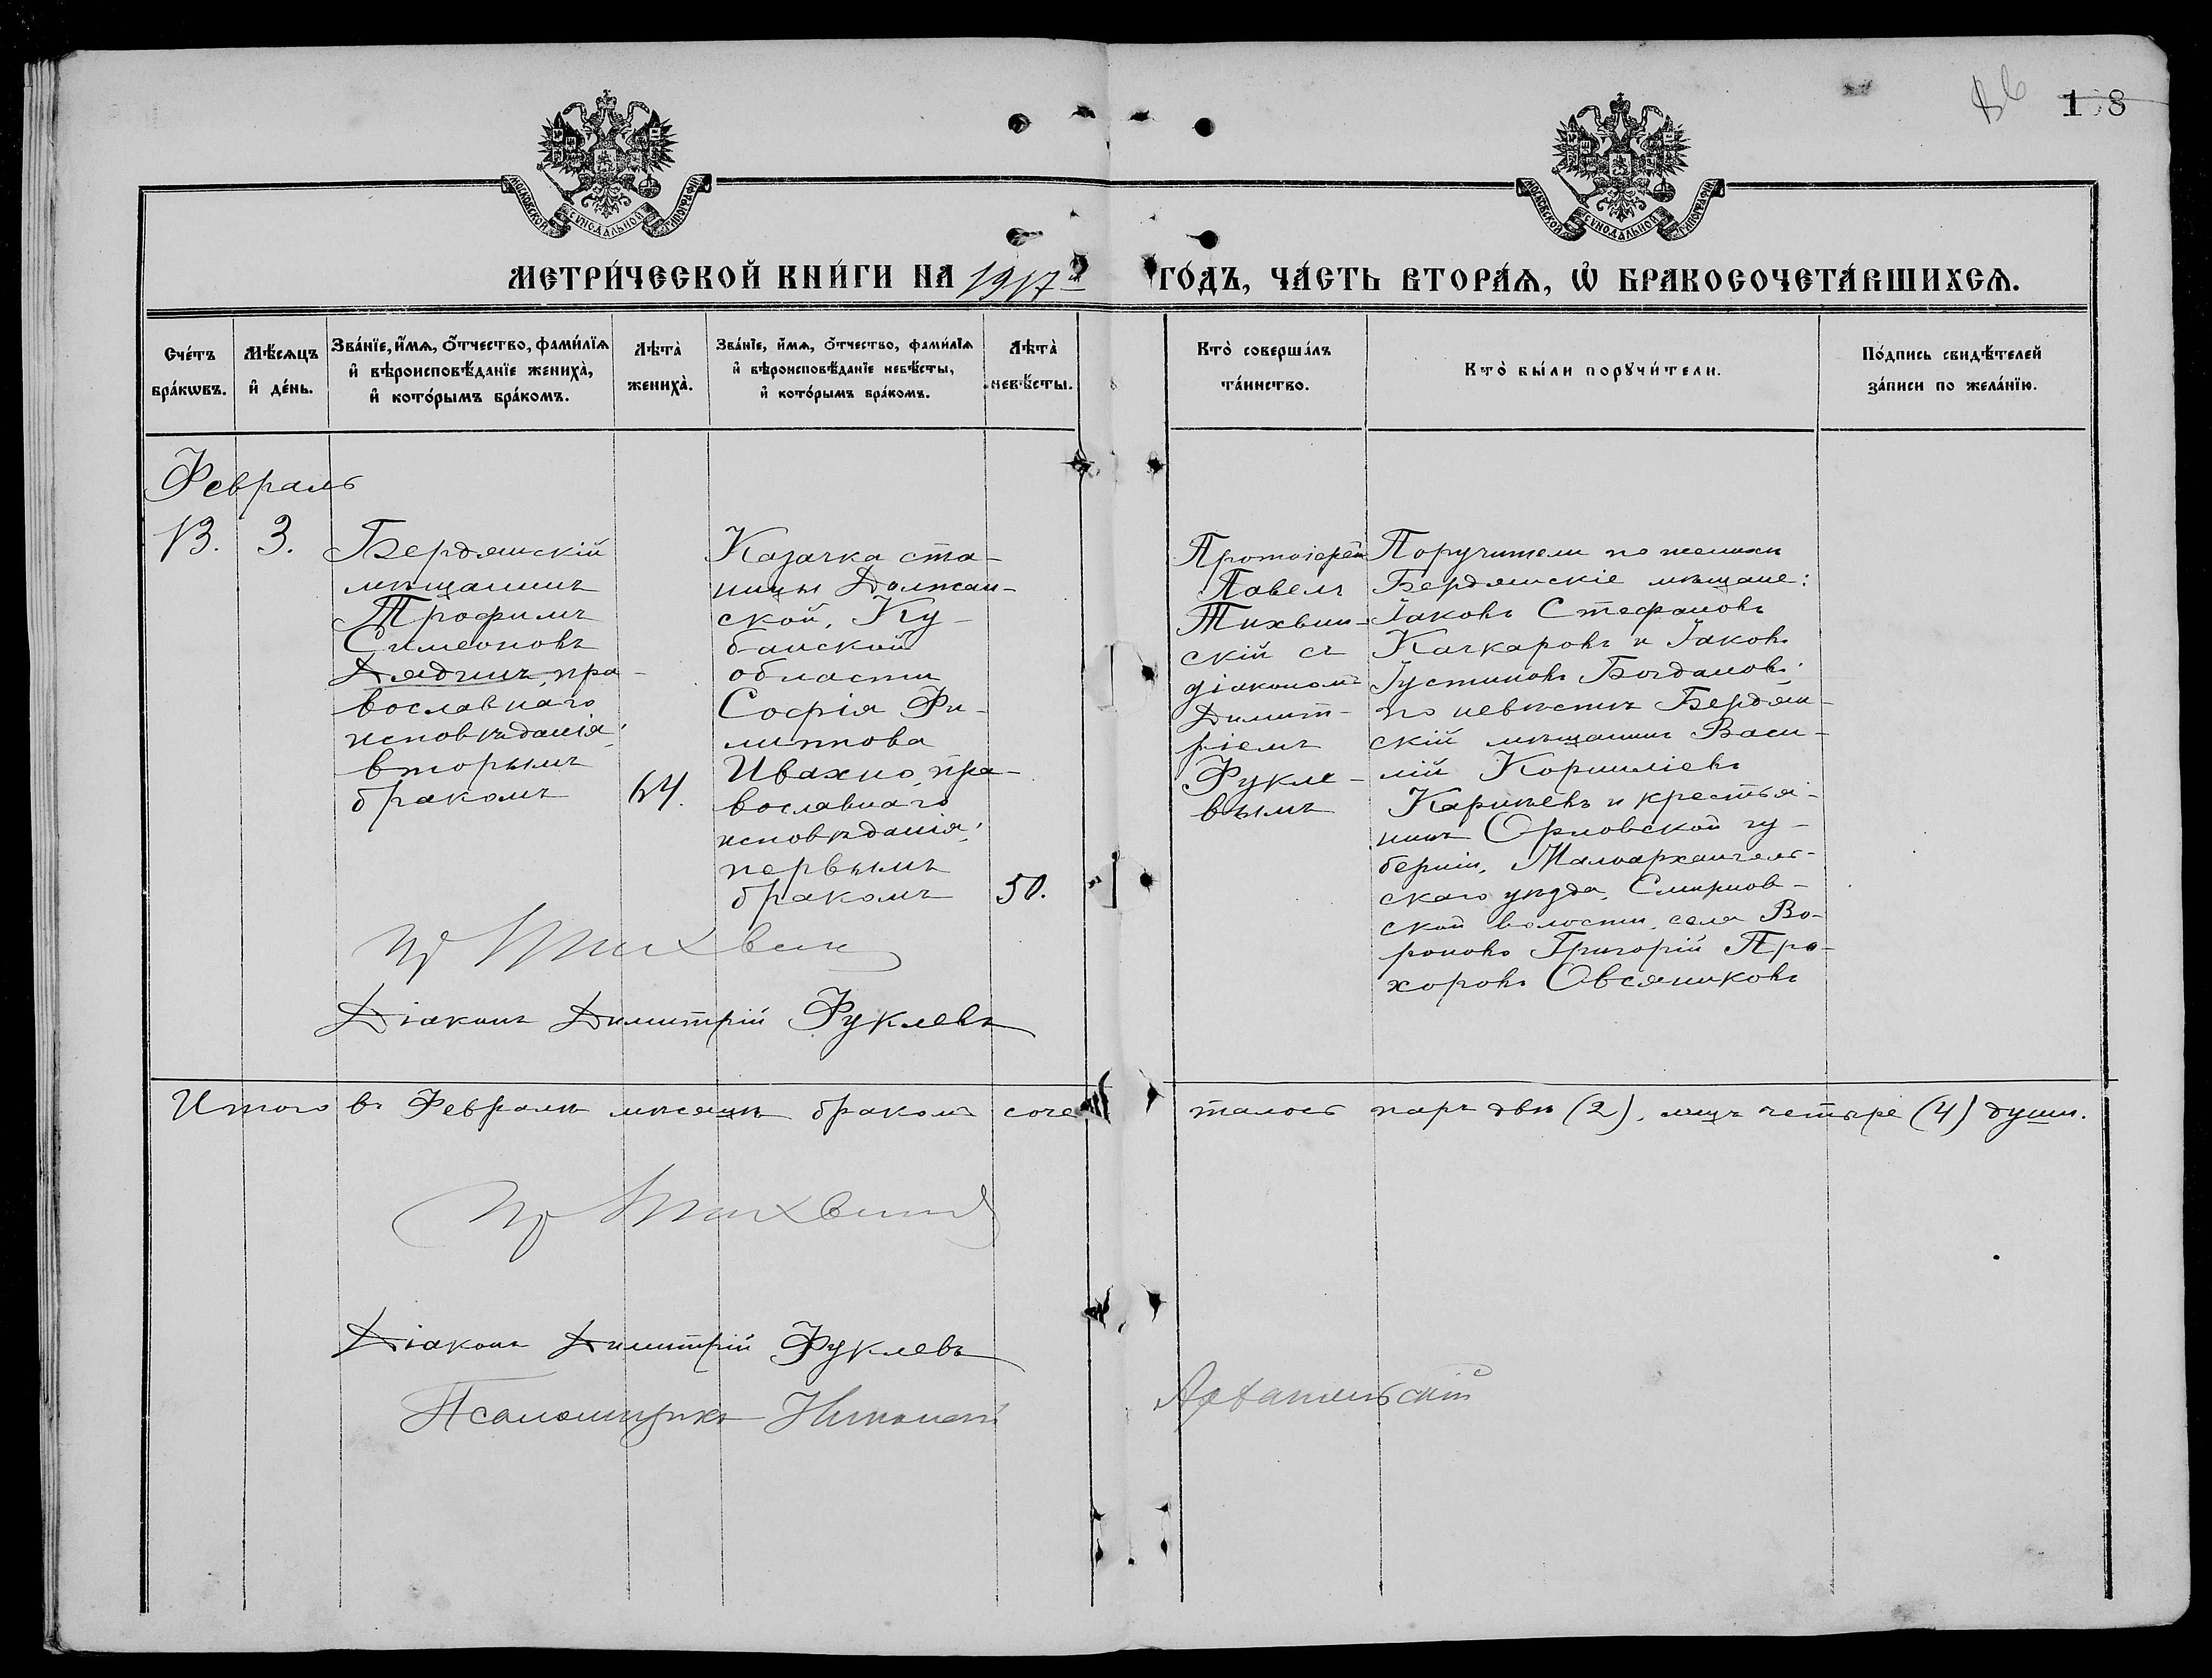 168
МОСКОВСКОЙ СѴНОДАЛЬНОЙ ТИПОГРАФІИ
МОСКОВСКОЙ СѴНОДАЛЬНОЙ ТИПОГРАФІИ
МЕТРИ́ЧЕСКОЙ КНИ́ГИ НА 1917 ГО́ДЪ, ЧА́СТЬ ВТОРА́Ѧ, Ѡ҆ БРАКОСОЧЕТА́ВШИХСѦ.
Сче́тъ бра́кѡвъ.
Мѣ́сѧцъ и҆ де́нь.
Зва́нїе, и҆́мѧ, ѻ҆́тчество, фами́лїѧ и҆ вѣроисповѣ́данїе жениха̀, и҆ кото́рымъ бра́комъ.
Лѣта̀ жениха̀.
Зва́нїе, и҆́мѧ, ѻ҆́тчество, фами́лїѧ и҆ вѣроисповѣ́данїе невѣ́сты, и҆ кото́рымъ бра́комъ.
Лѣта̀ невѣ́сты.
Кто̀ соверша́лъ та́инство.
Кто̀ бы́ли порꙋчи́тели.
По́дпись свидѣ́телей за́писи по жела́нїю.
Февраль
13. 3.
Бердянскій
мѣщанинъ
Трофимъ
Симеоновъ
Дядинъ, пра-
вославнаго
исповѣданія;
вторымъ
бракомъ
64.
Казачка ста-
ницы Должан-
ской, Ку-
банской
области
Софія Фи-
липпова
Ивахно, пра-
вославнаго
исповѣданія;
первымъ
бракомъ
50.
Протоіерей
Павелъ
Тихвин-
скій съ
діакономъ
Димит-
ріемъ
Фукле-
вымъ
Поручители по женихѣ
Бердянскіе мѣщане:
Іаковъ Стефановъ
Качкаровъ и Іаковъ
Іустиновъ Богдановъ;
по невѣстѣ Бердян-
скій мѣщанинъ Васи-
лій Корниліевъ
Карпѣевъ и крестья-
нинъ Орловской гу-
берніи, Малоархангель-
скаго уѣзда, Смирнов-
ской волости, села Во-
роново Григорій Про-
хоровъ Овсяниковъ
Пр Тихвин
Діаконъ Димитрій Фуклевъ
Итого въ Февралѣ мѣсяцѣ бракомъ соче талось паръ двѣ (2), лицъ четыре (4) души.
Пр Тихвинскій
Діаконъ Димитрій Фуклевъ
Псаломщикъ Николай Архангельскій